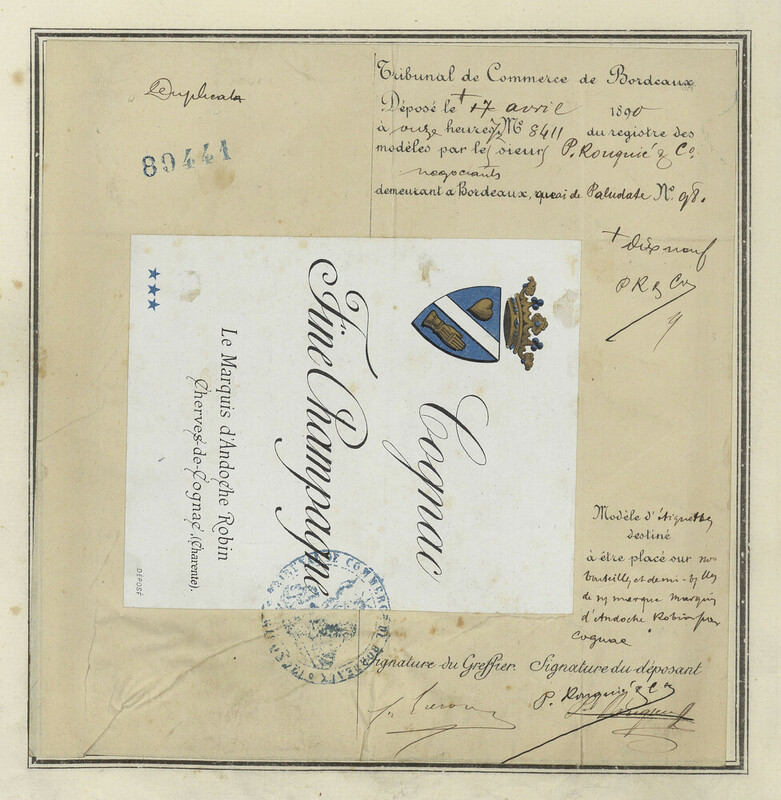 Duplicata
89441
Tribunal de Commerce de Bordeaux
Déposé le + 17 avril 1890
à onze heures, Nº 8411 du registre des
modèles par les sieurs P. Rouquié & Co.
négociants
demeurant a Bordeaux, quai de Paludate Nº 98.
+ dix neuf
P R & Co
Cognac
Fine Champagne
Le Marquis d'Andoche Robin
Cherves-de-Cognac (Charente).
DÉPOSÉ
TRIBUNAL DE COMMERCE DE BORDEAUX
Modèle d'étiquette
destiné
à être placé sur nos
bouteilles et demi-
de marque Marquis
d'Andoche Robin par
Cognac
Signature du Greffier. Signature du déposant
P. Rouquié & Co